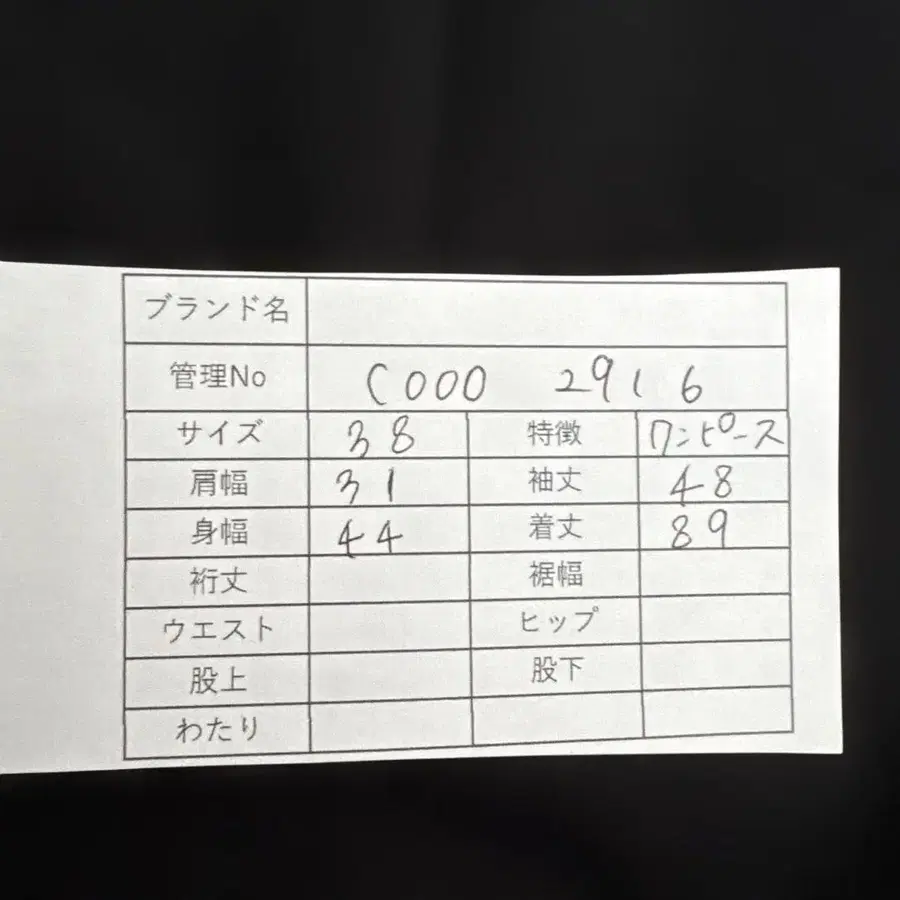 ブランド名
管理No C000 2916
サイズ 38 特徴 ワンピース
肩幅 31 袖丈 48
身幅 44 着丈 89
裄丈 裾幅
ウエスト ヒップ
股上 股下
わたり